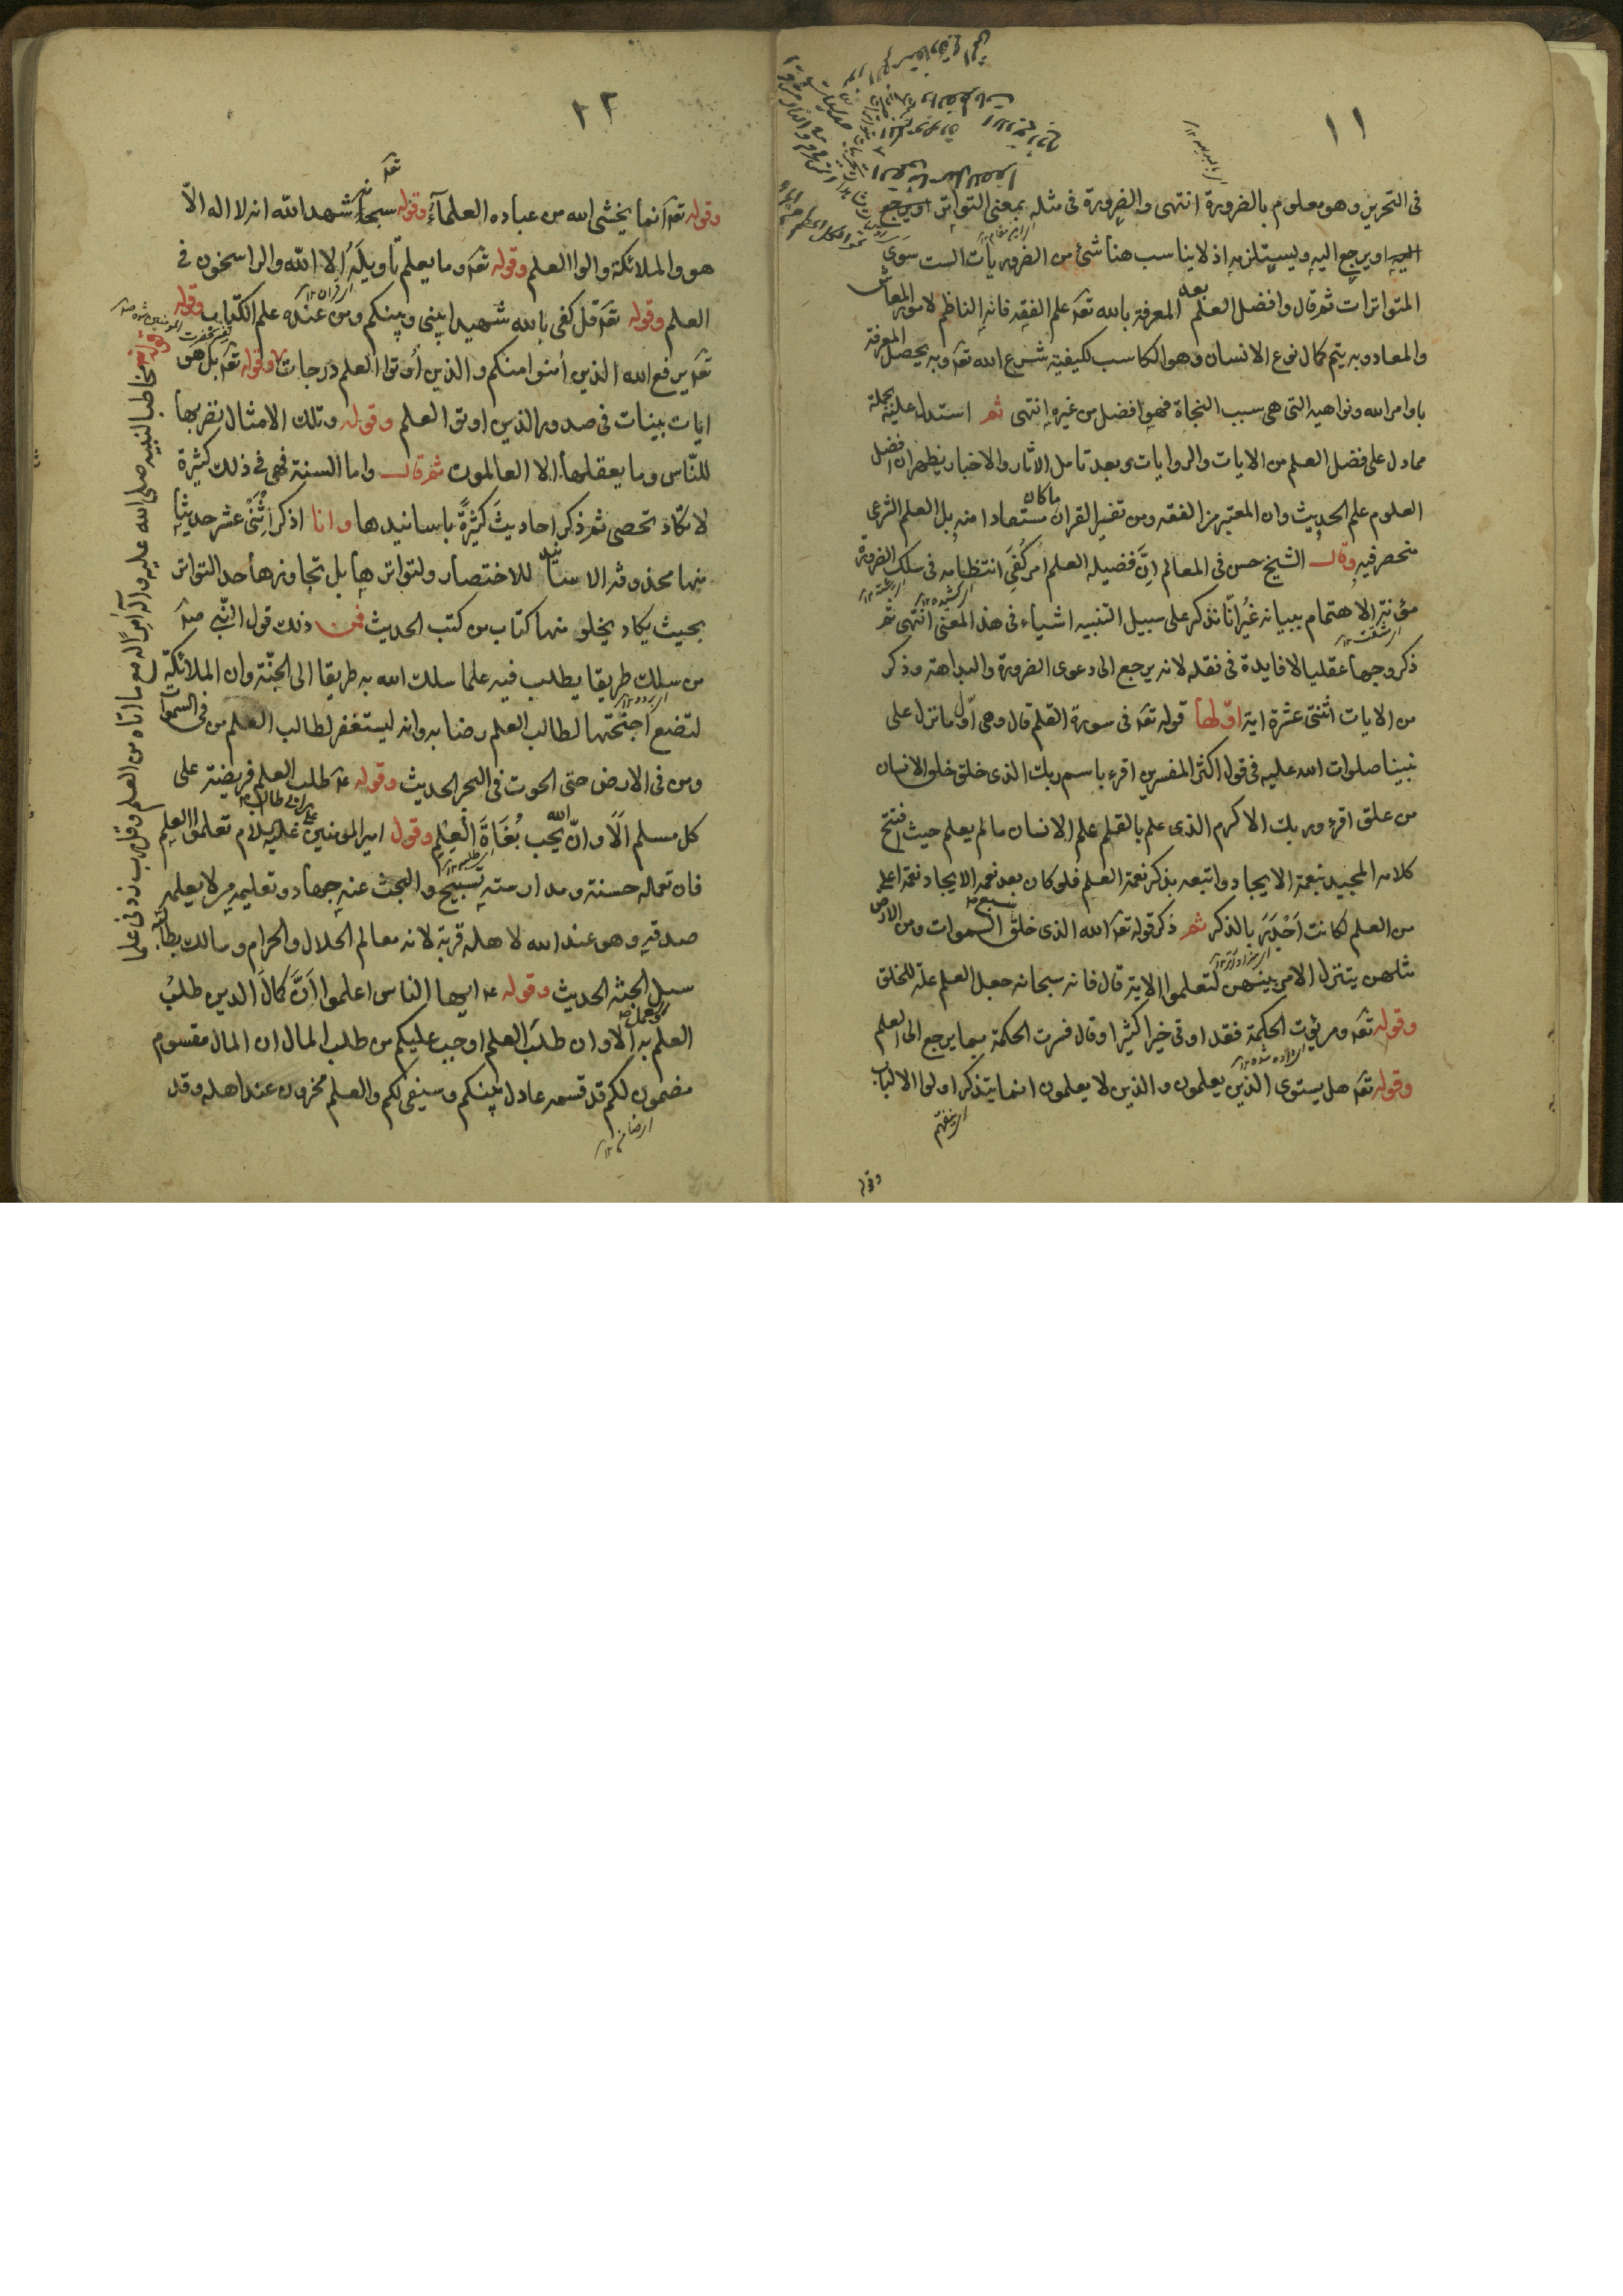 ١١
فى التحرير وهو معلوم بالضرورة انتهى والضرورة فى مثله بمعنى التواتر او يرجع
اليه او يرجع اليه ويستلزمه اذ لا يناسب هنا شئ من الضروريات الست سوى
المتواترات ثم قال وافضل العلم بعد المعرفة بالله تعه علم الفقه فانه الناظم لامور المعاش
والمعاد وبه يتم كمال نوع الانسان وهو الكاسب لكيفيته شرع الله تعه وبه يحصل المعرفة
باوامر الله ونواهيه التى هى سبب النجاة فهو افضل من غيره انتهى ثم استدل عليه بجملة
مما دل على فضل العلم من الايات والروايات وبعد تامل الاثار والاخبار يظهر ان افضل
العلوم علم الحديث وان المعتبر من الفقه ومن تفسير القران ما كان مستفادا منه بل العلم الشرعى
منحصر فيه وقال الشيخ حسن فى المعالم انّ فضيله العلم امر كُفى انتظامه فى سلك الضرورة
مؤنة الاهتمام ببيانه غير انّا نذكر على سبيل التنبيه اشياء فى هذ المعنى انتهى ثم
ذكر وجها عقليا لا فايدة فى نقله لانه يرجع الى دعوى الضرورة والبداهة وذكر
من الايات اثنتى عشرة اية اوّلها قوله تعه فى سورة القلم قال وهى اوّل ما نزل على
نبينا صلوات الله عليه فى قول اكثر المفسرين اقرء باسم ربك الذى خلق خلق الانسان
من علق اقرء وربك الاكرم الذى علم بالقلم علم الانسان مالم يعلم حيث افتتح
كلامه المجيد بنعمة الايجاد واتبعه بذكر نعمة العلم فلو كان بعد نعمة الايجاد نعمة اعلى
من العلم لكانت اَجْدَرَ بالذكر ثم ذكر قوله تعه الله الذى خلق سبع السموات ومن الارض
مثلهن يتنزل الامر بينهن لتعلموا الاية قال فانه سبحانه جعل العلم علّة للخلق
وقوله تعه ومن يؤت الحكمة فقد اوتى خيرا كثيرا وقال فسرت الحكمة بما يرجع الى العلم
وقوله تعه هل يستوى الذين يعلمون والذين لا يعلمون انما يتذكر اولوا الالباب
وقوله
٢٢
وقوله تعه انما يخشى الله من عباده العلمآءُ وقوله سبحانه شهد الله انه لا اله الاّ
هو والملائكة والوا العلم وقوله تعه وما يعلم تاويلَهُ الا الله والراسخون فى
العلم وقوله تعه قل كفى بالله شهيدا بينى وبينكم ومن عنده علم الكتاب وقوله
تعه يرفع الله الذين أمنوا منكم والذين أوتوا العلم درجات وقوله تعه بل هو
ايات بينات فى صدور الذين اوتو العلم وقوله وتلك الامثال نضربها
للنّاس وما يعقلها الا العالمون ثم قال واما السنة فهى فى ذلك كثيرة
لا تكاد تحصى ثم ذكر احاديثَ كثيرةً باسانيدها وانا اذكر اثنَىْ عشر حديثا
منها محذوفة الاسانيد للاختصار ولتواترها بل تجاوزها حد التواتر
بحيث يكاد يخلو منها كتاب من كتب الحديث فمن ذلك قول النّبى صه
من سلك طريقا يطلب فيه علما سلك الله به طريقا الى الجنّة وان الملائكة
لتضع اجنحتها لطالب العلم رضا به وانه ليستغفر لطالب العلم من فى السموات
ومن فى الارض حتى الحوت فى البحر الحديث وقوله عه طلب العلم فريضة على
كل مسلم الَا وانّ الله يحب بُغَاةَ الْعِلْمِ وقول امير المومنين عليه السلام تعلموا العلم
فان تعلمه حسنة ومدارسته تسبيح والبحث عنه جهاد وتعليمه من لا يعلمه
صدقه وهو عند الله لاهله قربة لانه معالم الحلال والحرام وسالك بطالبه
سبل الجنّة الحديث وقوله عه ايها الناس اعلموا اَنَّ كمالَ الدين طلبُ
العلم والعمل به الا وان طلبَ العلم اوجب عليكم من طلب المال ان المال مقسوم
مضمون لكم قد قسمه عادل بينكم وسيفى لكم والعلم مخزون عند اهله وقد
وقوله تعه مخاطبا لنبيه صلى الله عليه وآله آمرًا له مع ما اتاه من العلم وقل رب زدنى علما